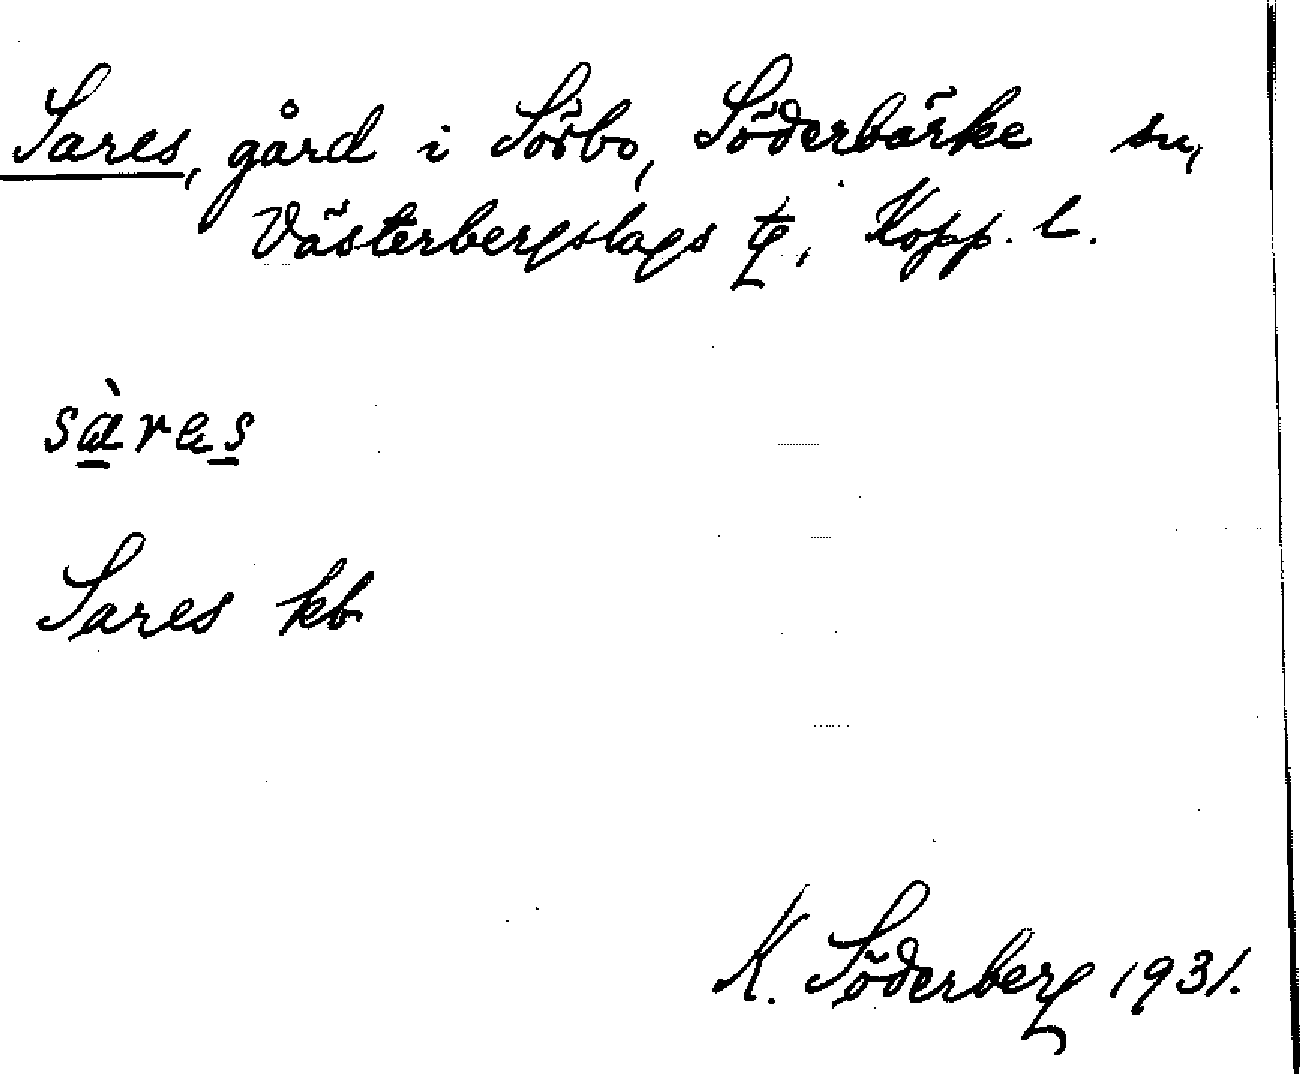 Sares, gård i Sörbo, Söderbärke sn,
Västerbergslags tg, Kopp. l.
sàres
Sares kb
K. Söderberg 1931.